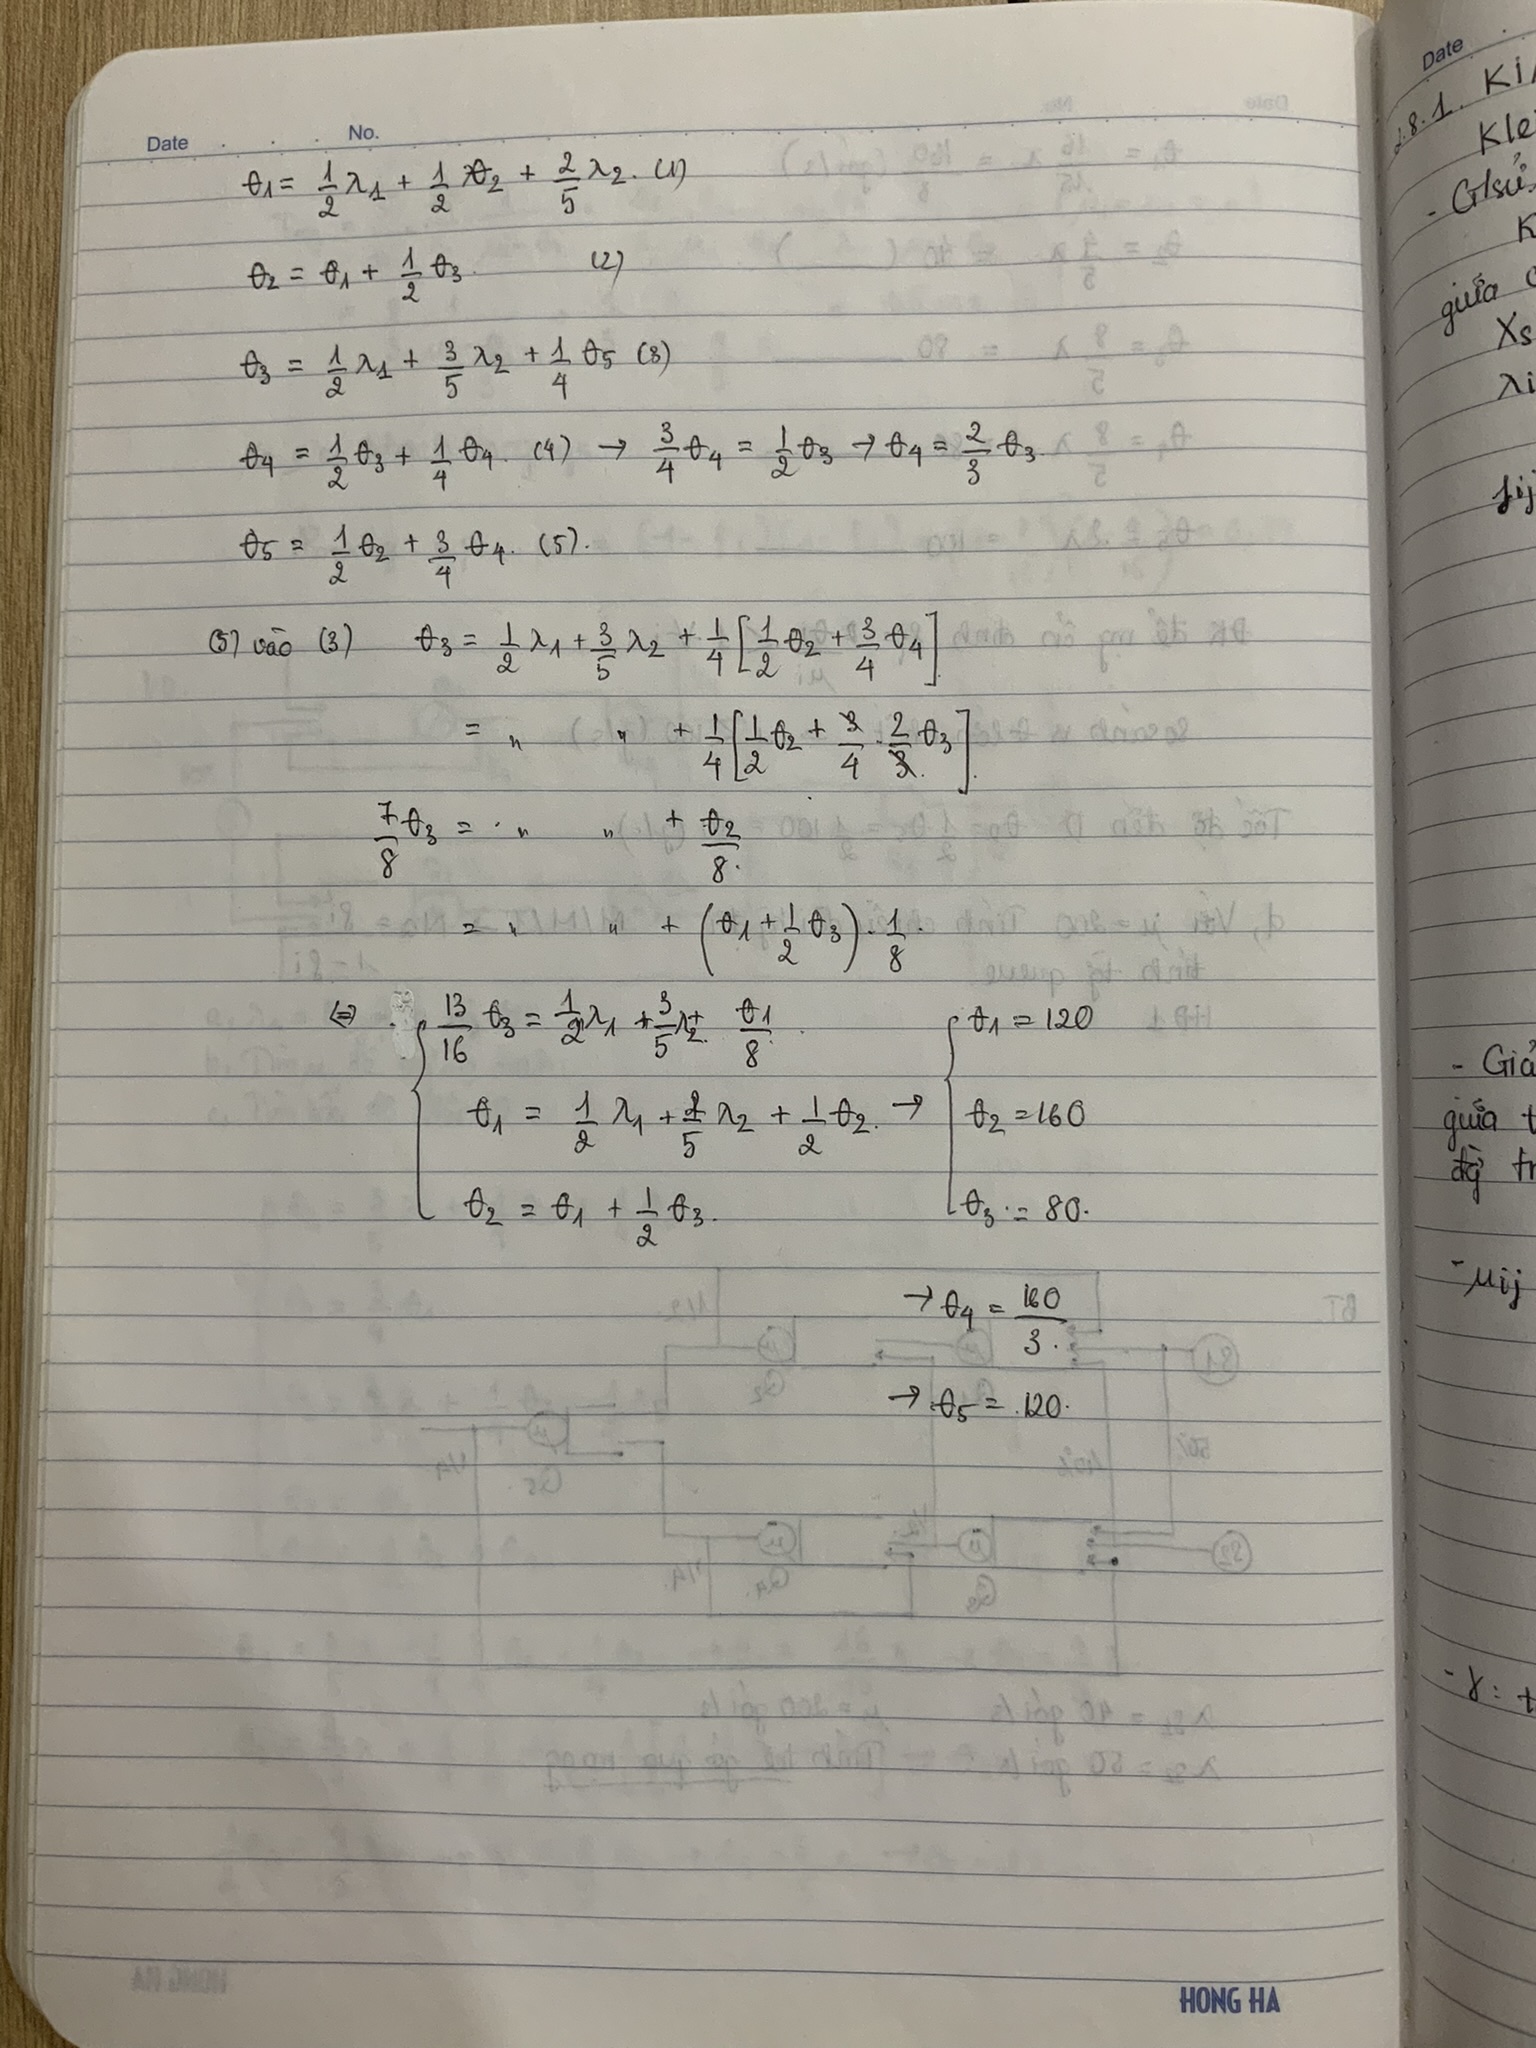 Date No.
θ1 = 1/2 λ1 + 1/2 θ2 + 2/5 λ2. (1)
θ2 = θ1 + 1/2 θ3. (2)
θ3 = 1/2 λ1 + 3/5 λ2 + 1/4 θ5 (3)
θ4 = 1/2 θ3 + 1/4 θ4. (4) → 3/4 θ4 = 1/2 θ3 → θ4 = 2/3 θ3.
θ5 = 1/2 θ2 + 3/4 θ4. (5).
(5) vào (3) θ3 = 1/2 λ1 + 3/5 λ2 + 1/4 [1/2 θ2 + 3/4 θ4]
= " " + 1/4 [1/2 θ2 + 3/4 . 2/3 θ3].
7/8 θ3 = " " + θ2/8.
= " " + (θ1 + 1/2 θ3) . 1/8.
⇔ { 13/16 θ3 = 1/2 λ1 + 3/5 λ2 + θ1/8 { θ1 = 120
θ1 = 1/2 λ1 + 2/5 λ2 + 1/2 θ2. → θ2 = 160
θ2 = θ1 + 1/2 θ3. θ3 = 80.
→ θ4 = 160/3.
→ θ5 = 120.
HONG HA
Date
2.8.1.
- G/sử
giữa
λi
- Giả
giữa t
- μij
- γ: t